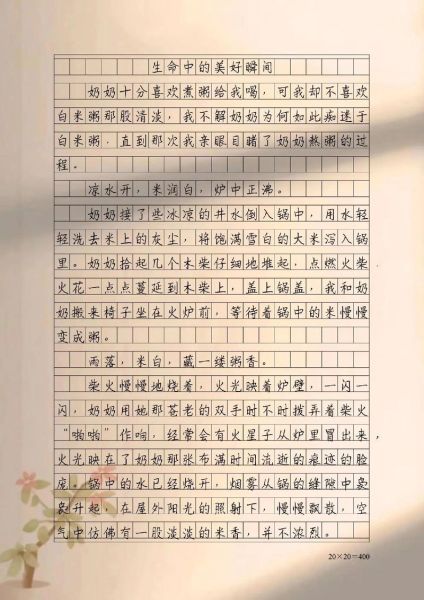 生命中的美好瞬间
奶奶十分喜欢煮粥给我喝，可我却不喜欢
白米粥那股清淡，我不解奶奶为何如此痴迷于
白米粥，直到那次我亲眼目睹了奶奶熬粥的过
程。
凉水开，米润白，炉中正沸。
奶奶接了些冰凉的井水倒入锅中，用水轻
轻洗去米上的灰尘，将饱满雪白的大米泻入锅
里。奶奶拾起几个木柴仔细地堆起，点燃火柴
火花一点点蔓延到木柴上，盖上锅盖，我和奶
奶搬来椅子坐在火炉前，等待着锅中的米慢慢
变成粥。
雨落，米白，藏一缕粥香。
柴火慢慢地烧着，火光映着炉壁，一闪一
闪，奶奶用她那苍老的双手时不时拨弄着柴火
“啪啪”作响，经常会有火星子从炉里冒出来，
火光映在了奶奶那张布满时间流逝的痕迹的脸
庞。锅中的水已经烧开，烟雾从锅的缝隙中袅
袅升起，在屋外阳光的照射下，慢慢飘散，空
气中仿佛有一股淡淡的米香，并不浓烈。
20×20=400